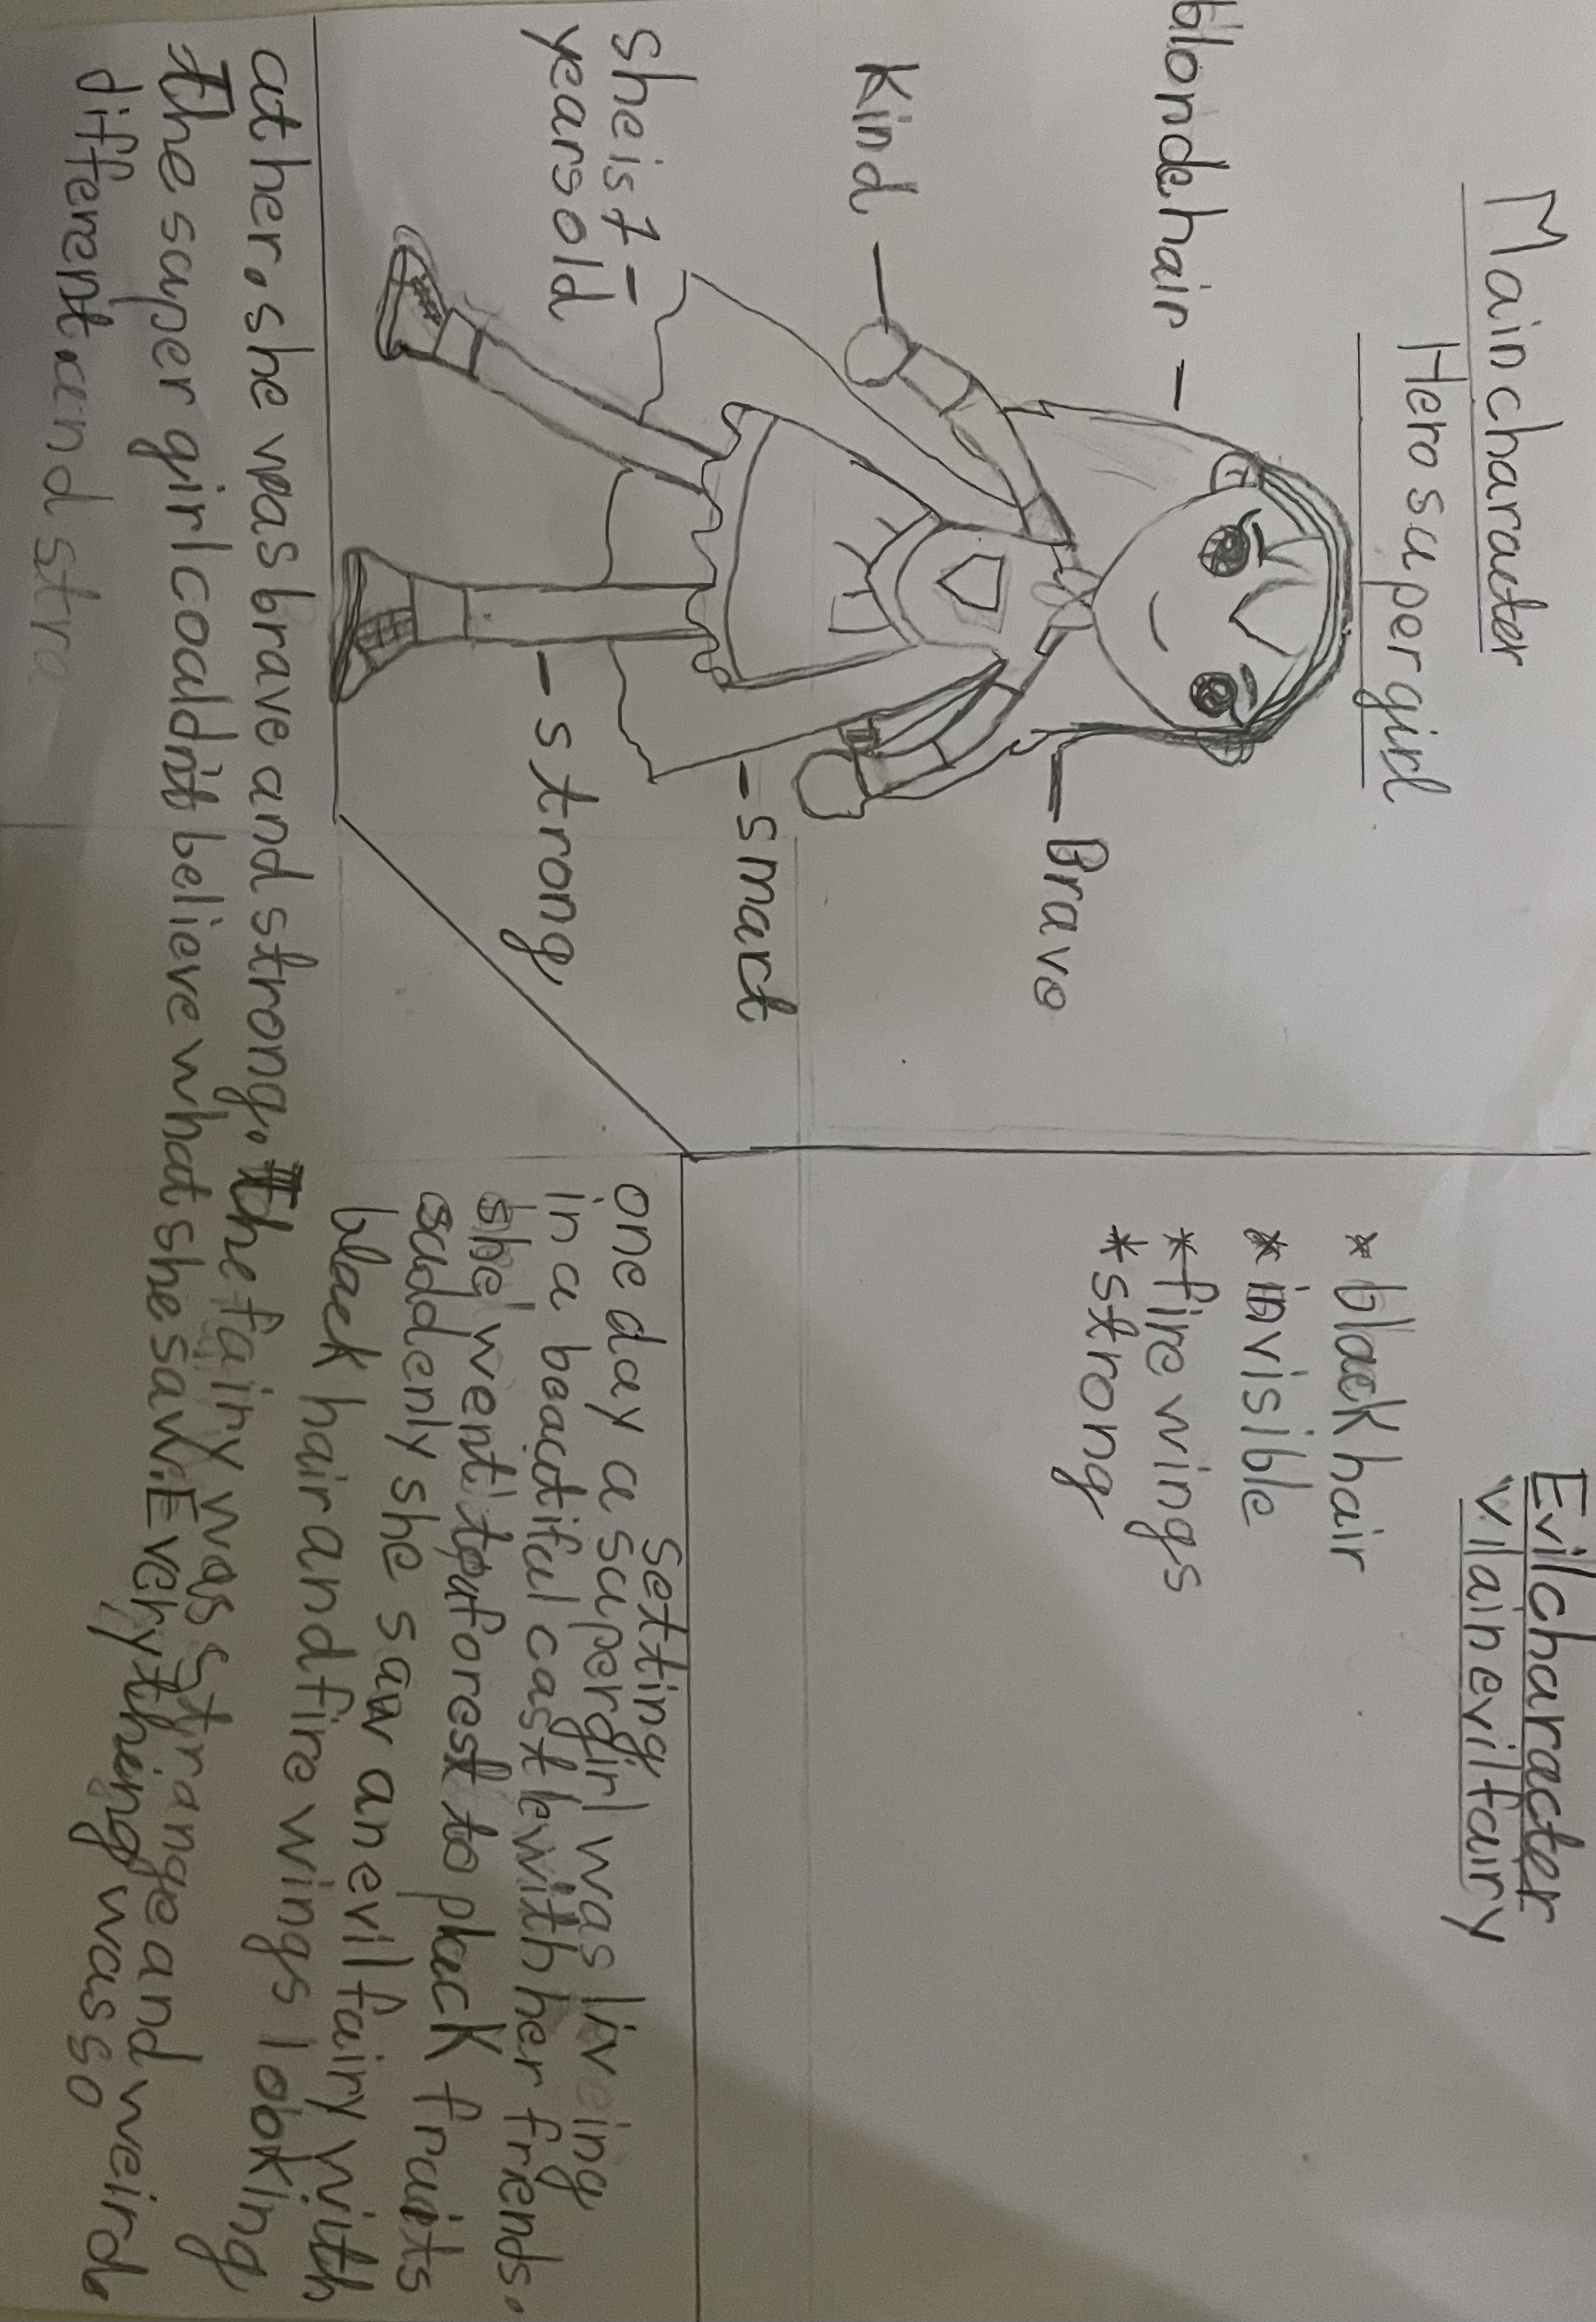 Main character
Hero supergirl
blonde hair
Kind
she is 7
years old
Brave
smart
strong
Evil character
vilain evil fairy
* black hair
* invisible
* fire wings
* strong
setting
one day a supergirl was liveing
in a beautiful castle with her friends.
she went to a forest to pluck fruits
suddenly she saw an evil fairy with
black hair and fire wings looking
at her. she was brave and strong. The fairy was strange and weird.
The super girl couldn't believe what she saw. Everything was so
different and stra